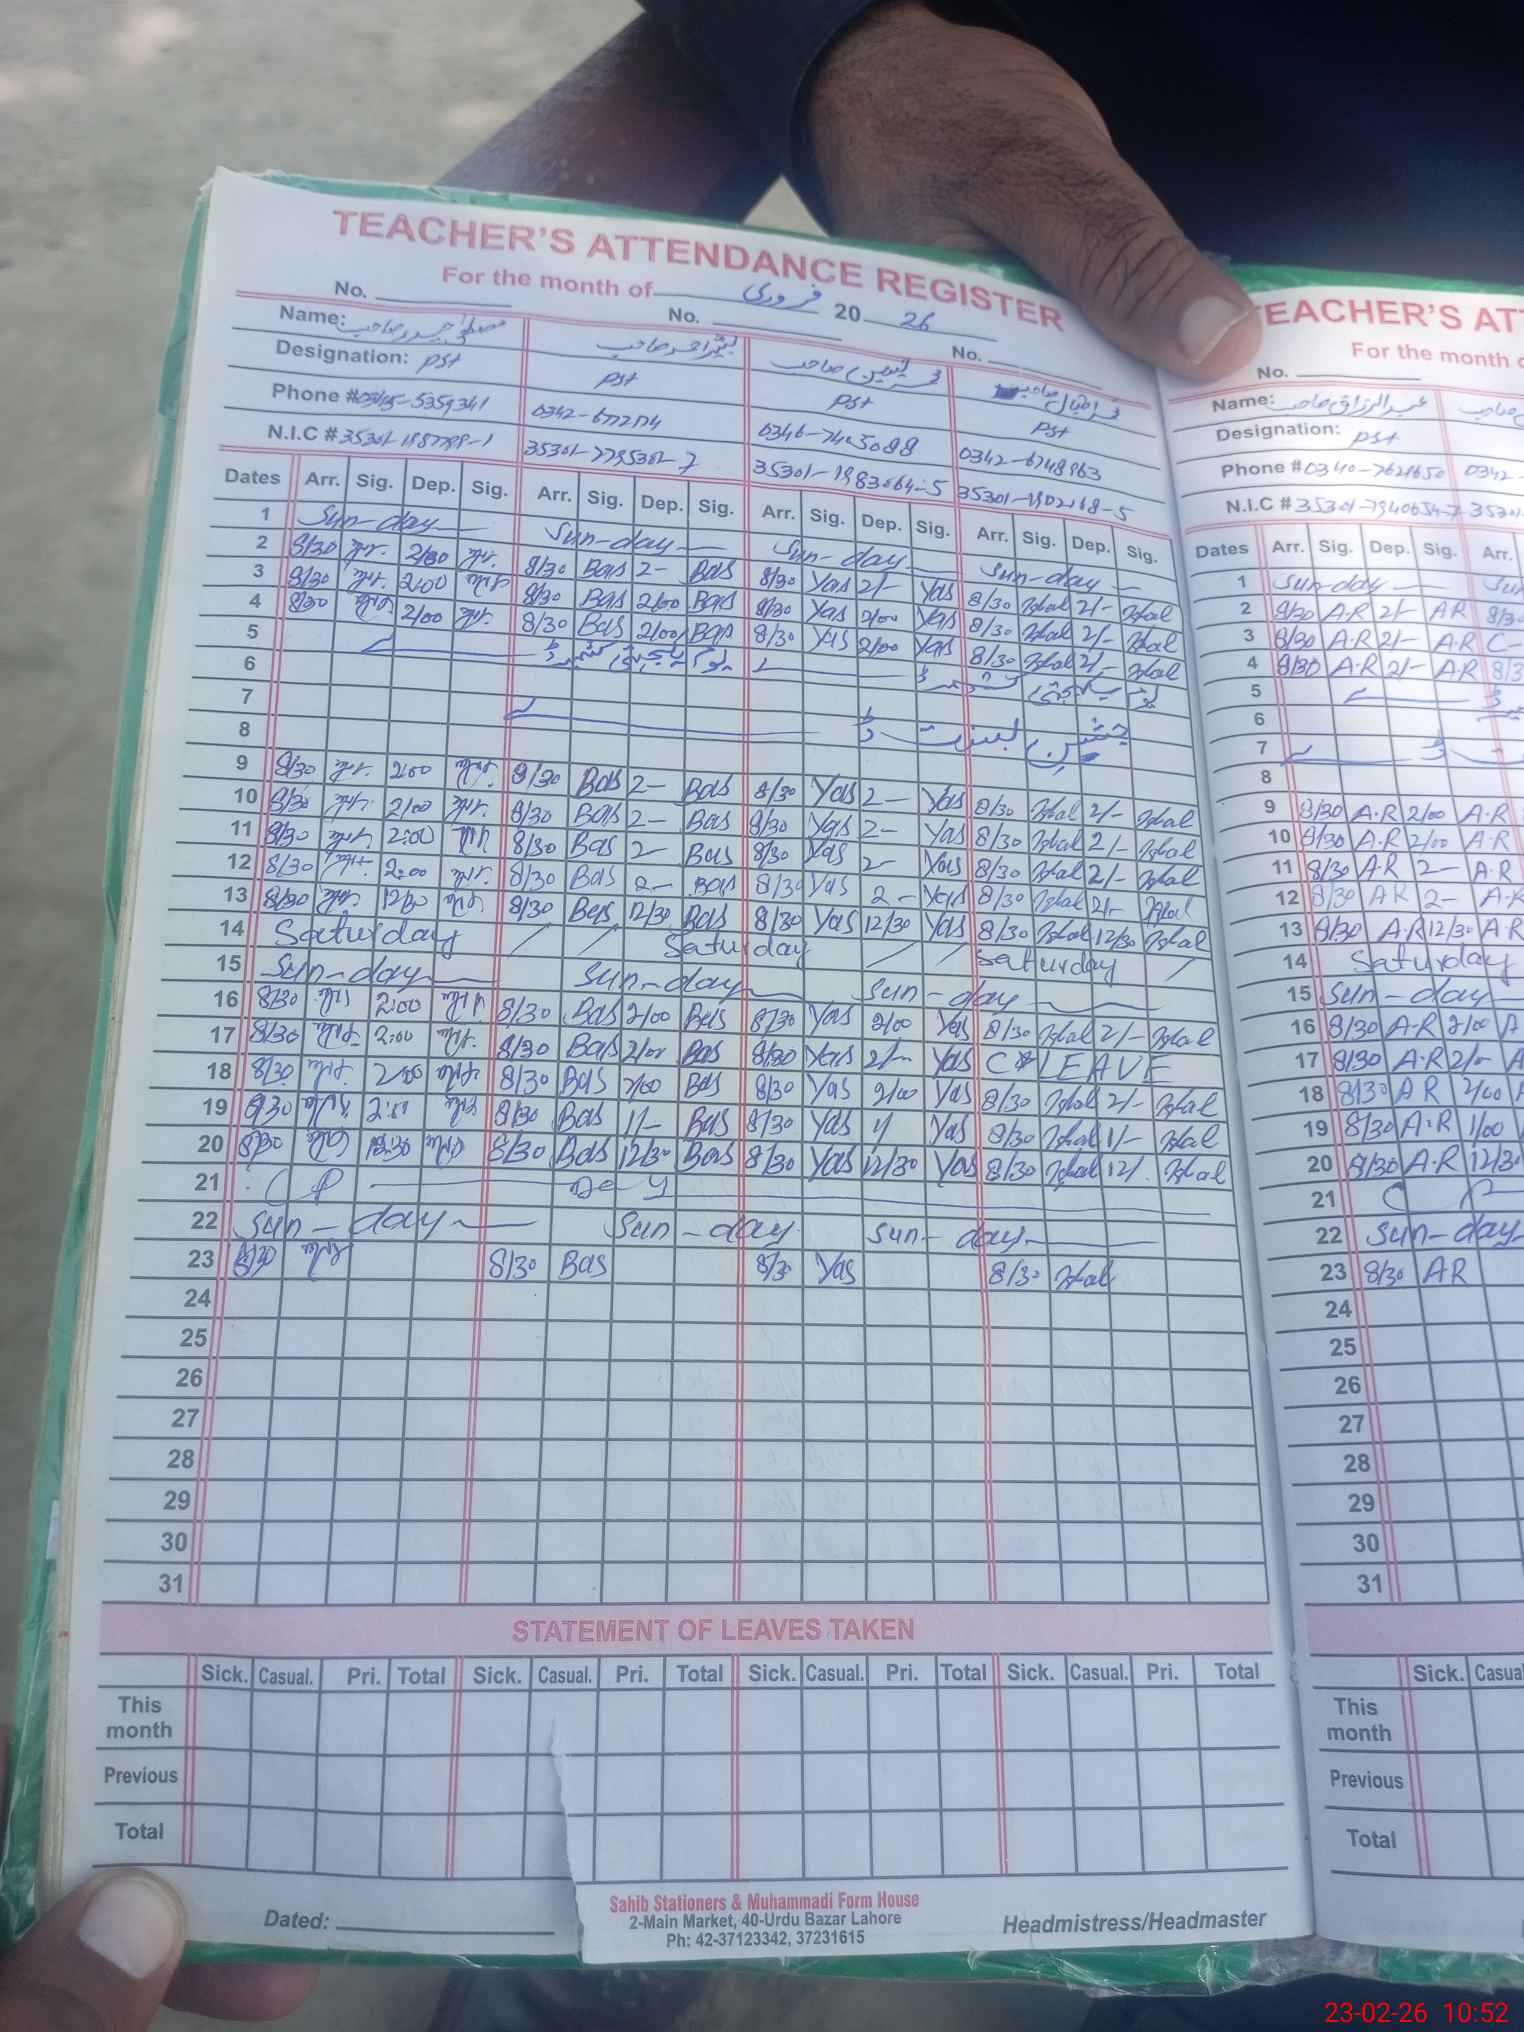 TEACHER'S ATTENDANCE REGISTER
For the month of فروری 20 26
No. No. No.
Name: صاحب بشیر احمد صاحب محمد یٰسین صاحب محمد اقبال صاحب
Designation: PST PST PST PST
Phone # 0342-6748963
N.I.C # 35301-1902168-5
Dates Arr. Sig. Dep. Sig. Arr. Sig. Dep. Sig. Arr. Sig. Dep. Sig. Arr. Sig. Dep. Sig.
1 Sun-day Sun-day Sun-day Sun-day
2 8/30 2/00 8/30 Bas 2- Bas 8/30 Yas 2/- Yas 8/30 Iqbal 2/- Iqbal
3 8/30 2:00 8/30 Bas 2/00 Bas 8/30 Yas 2/00 Yas 8/30 Iqbal 2/- Iqbal
4 8/30 2/00 8/30 Bas 2/00 Bas 8/30 Yas 2/00 Yas 8/30 Iqbal 2/- Iqbal
5 یوم یکجہتی کشمیر یوم یکجہتی کشمیر
6
7 جشن بسنت
8
9 8/30 2:00 8/30 Bas 2- Bas 8/30 Yas 2- Yas 8/30 Iqbal 2/- Iqbal
10 8/30 2/00 8/30 Bas 2- Bas 8/30 Yas 2- Yas 8/30 Iqbal 2/- Iqbal
11 8/30 2:00 8/30 Bas 2- Bas 8/30 Yas 2- Yas 8/30 Iqbal 2/- Iqbal
12 8/30 2:00 8/30 Bas 2- Bas 8/30 Yas 2- Yas 8/30 Iqbal 2/- Iqbal
13 8/30 12/30 8/30 Bas 12/30 Bas 8/30 Yas 12/30 Yas 8/30 Iqbal 12/30 Iqbal
14 Saturday Saturday Saturday
15 Sun-day Sun-day Sun-day
16 8/30 2:00 8/30 Bas 2/00 Bas 8/30 Yas 2/00 Yas 8/30 Iqbal 2/- Iqbal
17 8/30 2:00 8/30 Bas 2/00 Bas 8/30 Yas 2/- Yas C LEAVE
18 8/30 2:00 8/30 Bas 2/00 Bas 8/30 Yas 2/00 Yas 8/30 Iqbal 2/- Iqbal
19 8/30 8/30 Bas 1/- Bas 8/30 Yas 1/ Yas 8/30 Iqbal 1/- Iqbal
20 8/30 12:30 8/30 Bas 12/30 Bas 8/30 Yas 12/30 Yas 8/30 Iqbal 12/. Iqbal
21 De y
22 Sun-day Sun-day Sun-day
23 8/30 8/30 Bas 8/30 Yas 8/30 Iqbal
24
25
26
27
28
29
30
31
STATEMENT OF LEAVES TAKEN
Sick. Casual. Pri. Total Sick. Casual. Pri. Total Sick. Casual. Pri. Total Sick. Casual. Pri. Total
This month
Previous
Total
Dated:
Sahib Stationers & Muhammadi Form House
2-Main Market, 40-Urdu Bazar Lahore
Ph: 42-37123342, 37231615
Headmistress/Headmaster
TEACHER'S
For the month
No.
Name: عبدالرزاق صاحب
Designation: PST
Phone # 0340-7621650 0342-
N.I.C # 35301-
Dates Arr. Sig. Dep. Sig. Arr.
1 Sun-day
2 8/30 A.R 2/- AR 8/30
3 8/30 A.R 2/- A.R C-
4 8/30 A.R 2/- A.R
5
6
7
8
9 8/30 A.R 2/00 A.R
10 8/30 A.R 2/00 A.R
11 8/30 A.R 2- A.R
12 8/30 AR 2- A.R
13 8/30 A.R 12/30 A.R
14 Saturday
15 Sun-day
16 8/30 A.R 2/00 A
17 8/30 A.R 2/-
18 8/30 AR 2/00
19 8/30 A.R 1/00
20 8/30 A.R 12/30
21
22 Sun-day
23 8/30 AR
24
25
26
27
28
29
30
31
Sick.
This month
Previous
Total
23-02-26 10:52